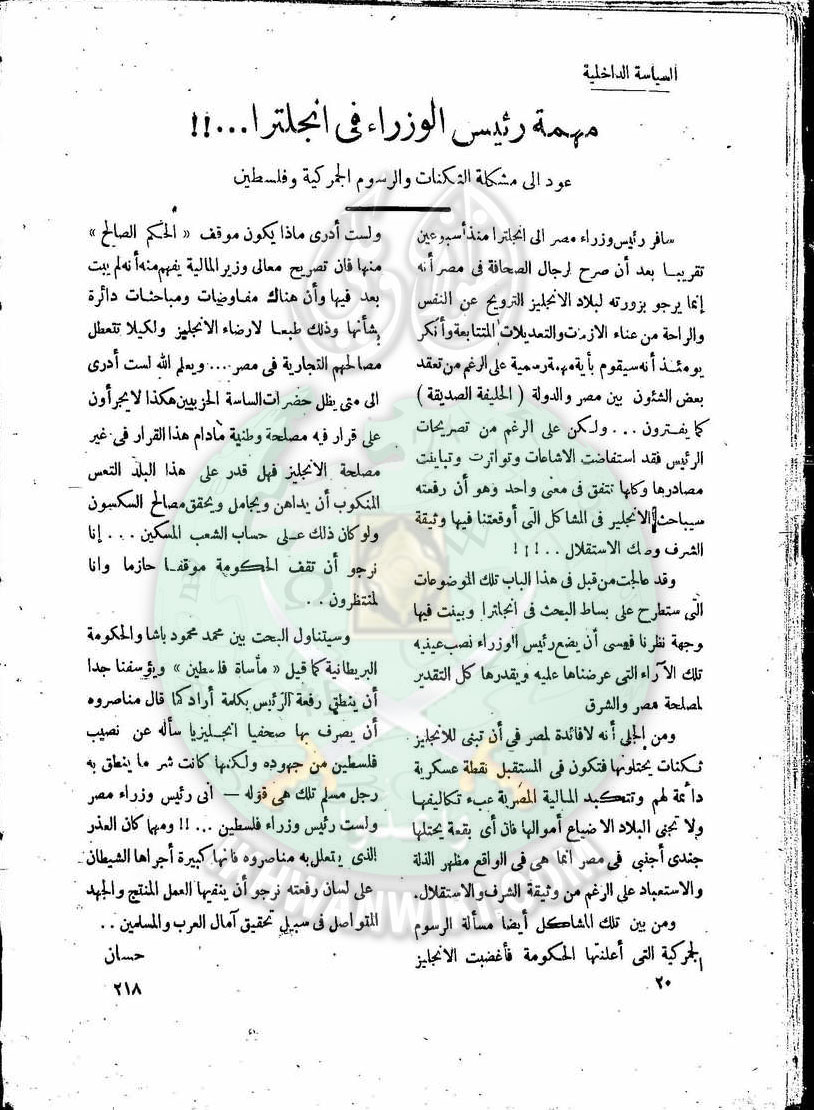 السياسة الداخلية
مهمة رئيس الوزراء فى انجلترا...!!
عود الى مشكلة الثكنات والرسوم الجمركية وفلسطين
سافر رئيس وزراء مصر الى انجلترا منذ أسبوعين
تقريبا بعد أن صرح لرجال الصحافة فى مصر أنه
إنما يرجو بزورته لبلاد الانجليز الترويح عن النفس
والراحة من عناء الازمات والتعديلات المتتابعة وأنكر
يومئذ أنه سيقوم بأية مهمة رسمية على الرغم من تعقد
بعض الشئون بين مصر والدولة ( الحليفة الصديقة )
كما يفترون ... ولكن على الرغم من تصريحات
الرئيس فقد استفاضت الاشاعات وتواترت وتباينت
مصادرها وكلها تتفق فى معنى واحد وهو أن رفعته
سيباحث الانجليز فى المشاكل التى أوقعتنا فيها وثيقة
الشرف وصك الاستقلال ..!!!
وقد عالجت من قبل فى هذا الباب تلك الموضوعات
التى ستطرح على بساط البحث فى انجلترا وبينت فيها
وجهة نظرنا فعسى أن يضع رئيس الوزراء نصب عينيه
تلك الآراء التى عرضناها عليه ويقدرها كل التقدير
لمصلحة مصر والشرق
ومن الجلى أنه لا فائدة لمصر فى أن تبنى للانجليز
ثكنات يحتلونها فتكون فى المستقبل نقطة عسكرية
دائمة لهم وتتكبد المالية المصرية عبء تكاليفها
ولا تجنى البلاد الا ضياع أموالها فان أى بقعة يحتلها
جندى أجنبى فى مصر انما هى فى الواقع مظهر الذلة
والاستعباد على الرغم من وثيقة الشرف والاستقلال.
ومن بين تلك المشاكل أيضا مسألة الرسوم
الجمركية التى أعلنتها الحكومة فأغضبت الانجليز
ولست أدرى ماذا يكون موقف « الحكم الصالح »
منها فان تصريح معالى وزير المالية يفهم منه أنه لم يبت
بعد فيها وأن هناك مفاوضات ومباحثات دائرة
بشأنها وذلك طبعا لارضاء الانجليز ولكيلا تتعطل
مصالحهم التجارية فى مصر ... ويعلم الله لست أدرى
الى متى يظل حضرات الساسة الحزبيين هكذا لا يجرأون
على قرار فيه مصلحة وطنية مادام هذا القرار فى غير
مصلحة الانجليز فهل قدر على هذا البلد التعس
المنكوب أن يداهن ويجامل ويحقق مصالح السكسون
ولو كان ذلك على حساب الشعب المسكين ... إنا
نرجو أن تقف الحكومة موقفا حازما وانا
لمنتظرون ..
وسيتناول البحث بين محمد محمود باشا والحكومة
البريطانية كما قيل « مأساة فلسطين » ويؤسفنا جدا
أن ينطق رفعة الرئيس بكلمة أراد كما قال مناصروه
أن يصرف بها صحفيا انجليزيا سأله عن نصيب
فلسطين من جهوده ولكنها كانت شر ما ينطق به
رجل مسلم تلك هى قوله — انى رئيس وزراء مصر
ولست رئيس وزراء فلسطين ...!! ومهما كان العذر
الذى يتعلل به مناصروه فانها كبيرة أجراها الشيطان
على لسان رفعته نرجو أن ينفيها العمل المنتج والجهد
المتواصل فى سبيل تحقيق آمال العرب والمسلمين ..
حسان
٢٠
٢١٨
WWW.IKHWANWIKI.COM
وأعدوا